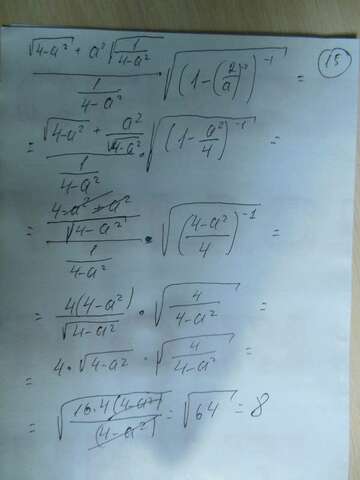 15
(√(4-a²) + a²√(1/(4-a²))) / (1/(4-a²)) · √((1-(2/a)⁻²)⁻¹) =
= (√(4-a²) + a²/√(4-a²)) / (1/(4-a²)) · √((1-a²/4)⁻¹) =
= ((4-a²+a²)/√(4-a²)) / (1/(4-a²)) · √(((4-a²)/4)⁻¹) =
= 4(4-a²)/√(4-a²) · √(4/(4-a²)) =
= 4·√(4-a²) · √(4/(4-a²)) =
= √(16·4(4-a²)/(4-a²)) = √64 = 8